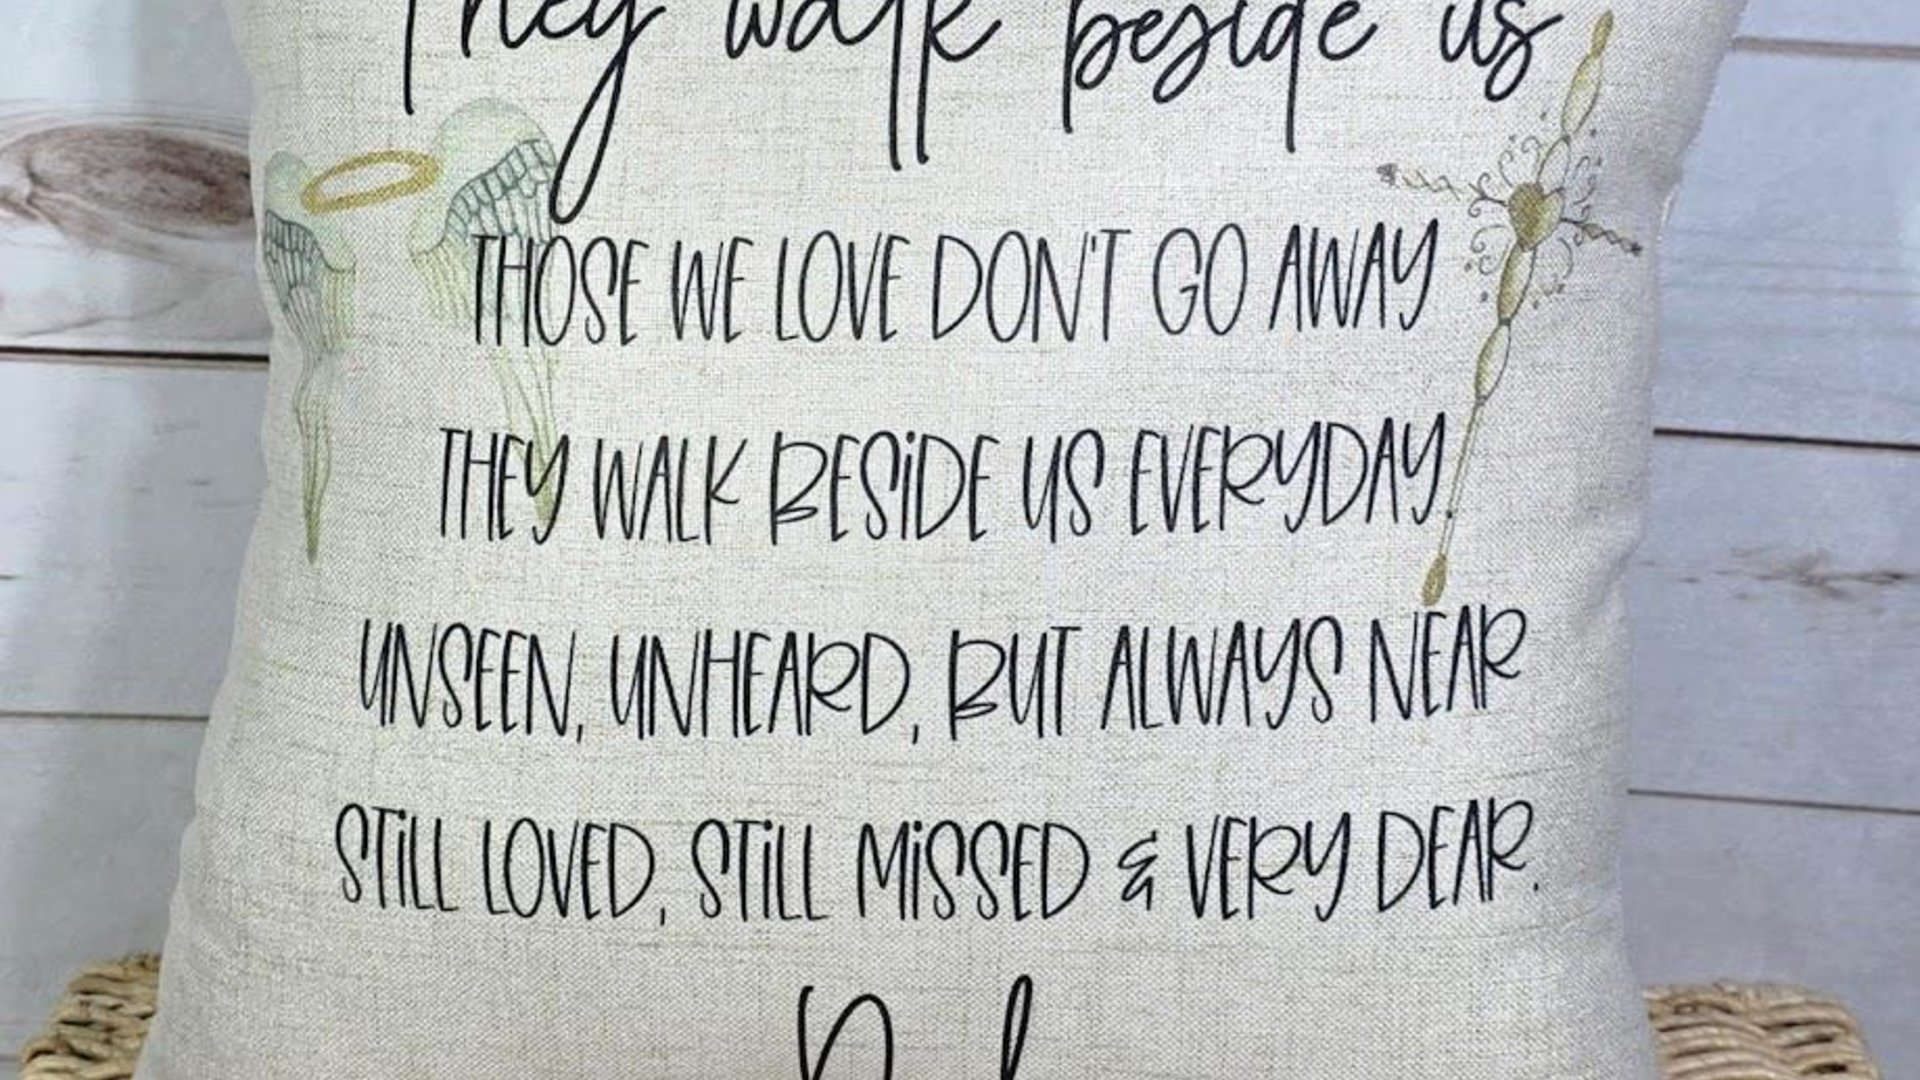 They walk beside us
THOSE WE LOVE DON'T GO AWAY
THEY WALK BESiDE US EVERYDAY.
UNSEEN, UNHEARD, BUT ALWAYS NEAR
STiLL LOVED, STiLL MiSSED & VERY DEAR.